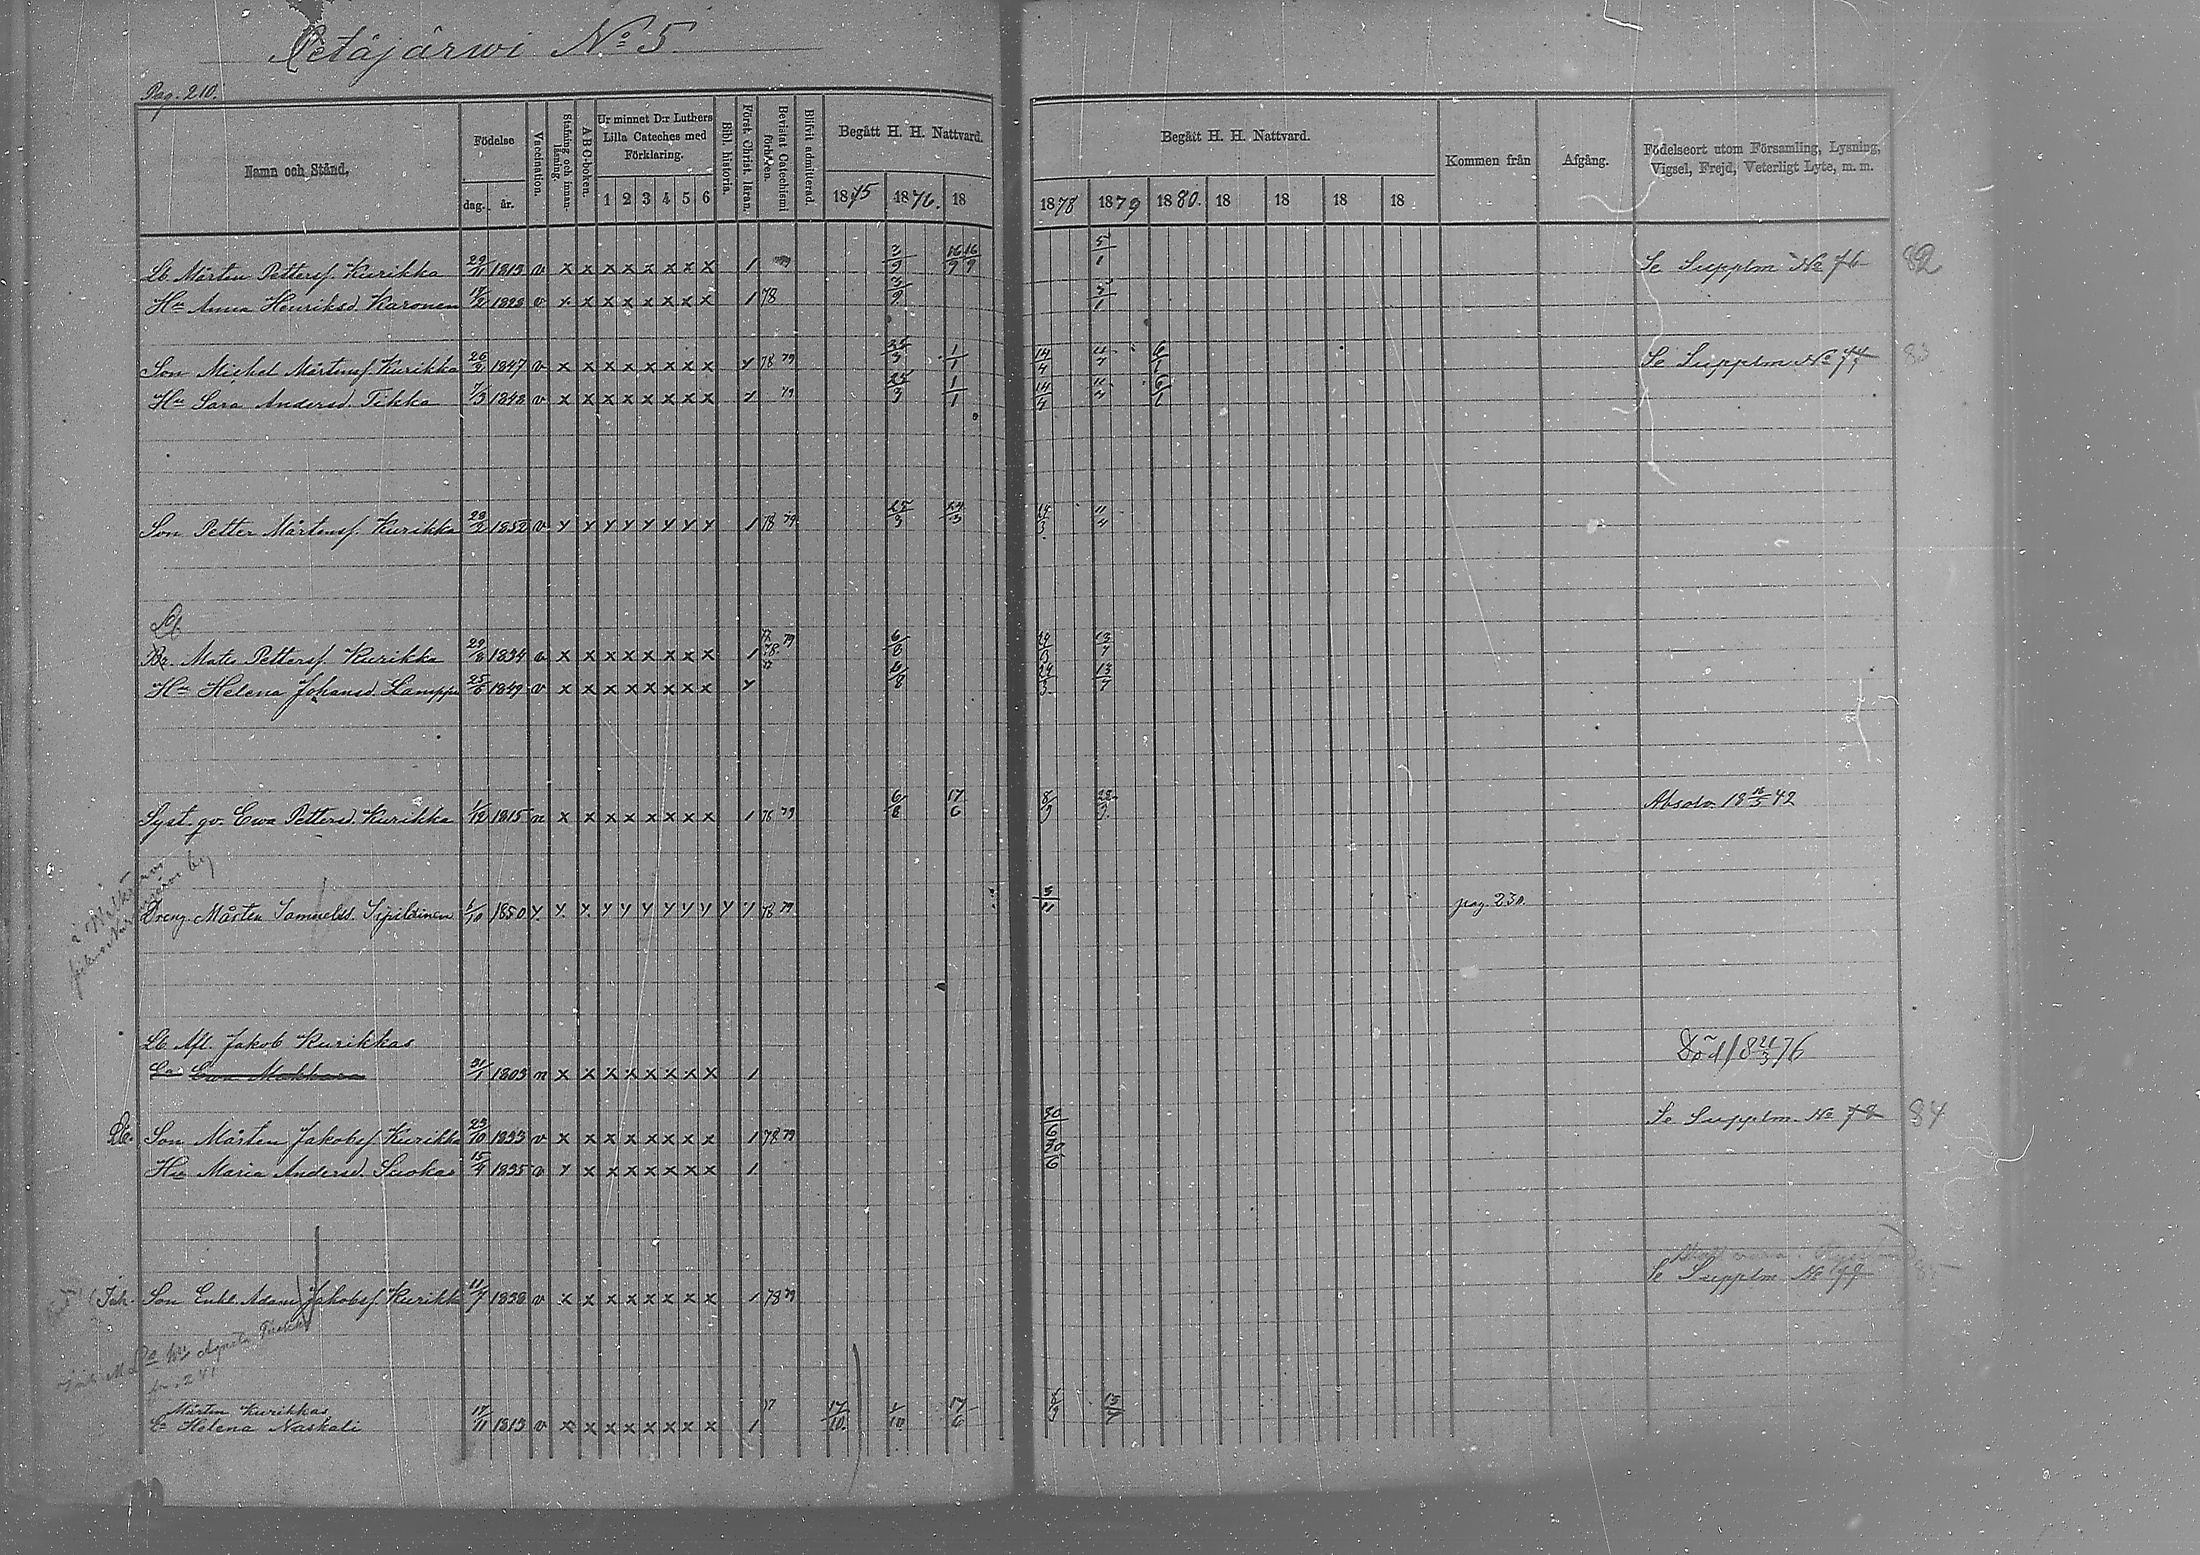 Petäjärwi No 5
Pag. 210.
Namn och Stånd.
Födelse
dag. år.
Vaccination.
Stafning och innanläsning.
ABC-boken.
Ur minnet D:r Luthers Lilla Cateches med Förklaring.
1 2 3 4 5 6
Bibl. historia.
Först. Christ. läran.
Bevistat Catechismi förhören.
Blifvit admitterad.
Begått H. H. Nattvard.
1875 1876. 18
Begått H. H. Nattvard.
1878 1879 1880. 18 18 18 18
Kommen från
Afgång.
Födelseort utom Församling, Lysning, Vigsel, Frejd, Veterligt Lyte, m. m.
Lb. Mårten Pettersf. Kurikka 29/11 1819 v x x x x x x x x 1 3/9 16/9 16/9 5/1 Se Supplm No 76 82
Hu Anna Henriksd. Karonen 17/2 1828 v x x x x x x x x 1 78 3/9 5/1
Son Michel Mårtensf Kurikka 26/2 1847 v x x x x x x x x y 78 79 25/3 1/1 14/4 11/4 6/1 Se Supplm No 77 83
Hu Sara Andersd. Tikka 7/3 1848 v x x x x x x x x y 79 25/3 1/1 14/4 11/4 6/1
Son Petter Mårtensf. Kurikka 28/2 1852 v y y y y y y y y 1 78 79 25/3 11/4
Lb
Br. Mats Pettersf. Kurikka 29/8 1834 v x x x x x x x x 1 78 79 6/8 13/7
Hu Helena Johansd. Lamppu 25/6 1849 v x x x x x x x x y 6/8 24/3 13/7
Syst. gv. Ewa Pettersd. Kurikka 1/12 1815 n x x x x x x x x 1 78 79 6/8 17/6 8/9
Absolv. 18 16/5 42
Dreng. Mårten Samuelss. Sipiläinen 1/10 1850 y y y y y y y y y y y 78 79 3/11 pag. 230.
Lb. Afl. Jakob Kurikkas
Ea Ewa Mokkara 31/1 1803 n x x x x x x x x 1 Död 18 21/3 76
Lb. Son Mårten Jakobsf Kurikka 23/10 1833 v x x x x x x x x 1 78 79 30/6 Se Supplm. No 78 84
Hu Maria Andersd. Suokas 15/4 1835 v y x x x x x x x 1 30/6
Se Supplm No 79 85
Son Enkl. Adam Jakobsf Kurikka 11/7 1838 v x x x x x x x x 1 78 79
Mårten Kurikkas
Ea Helena Naskali 17/11 1813 v x x x x x x x x 1 17/10. 1/10 17/6